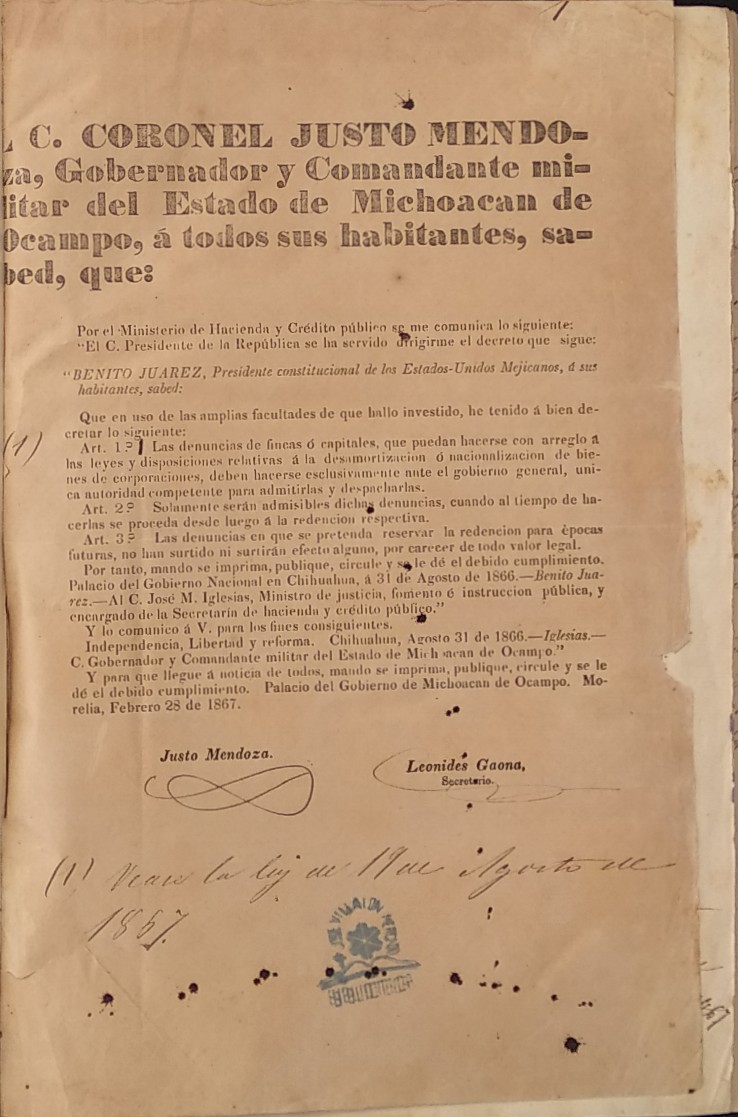 1
L C. CORONEL JUSTO MENDO-
za, Gobernador y Comandante mi-
litar del Estado de Michoacan de
Ocampo, á todos sus habitantes, sa-
bed, que:
Por el Ministerio de Hacienda y Crédito público se me comunica lo siguiente:
"El C. Presidente de la República se ha servido dirigirme el decreto que sigue:
"BENITO JUAREZ, Presidente constitucional de los Estados-Unidos Mejicanos, á sus
habitantes, sabed:
Que en uso de las amplias facultades de que hallo investido, he tenido á bien de-
cretar lo siguiente:
(1)
Art. 1º Las denuncias de fincas ó capitales, que puedan hacerse con arreglo á
las leyes y disposiciones relativas á la desamortizacion ó nacionalizacion de bie-
nes de corporaciones, deben hacerse esclusivamente ante el gobierno general, uni-
ca autoridad competente para admitirlas y despacharlas.
Art. 2º Solamente serán admisibles dichas denuncias, cuando al tiempo de ha-
cerlas se proceda desde luego á la redencion respectiva.
Art. 3º Las denuncias en que se pretenda reservar la redencion para épocas
futuras, no han surtido ni surtirán efecto alguno, por carecer de todo valor legal.
Por tanto, mando se imprima, publique, circule y se le dé el debido cumplimiento.
Palacio del Gobierno Nacional en Chihuahua, á 31 de Agosto de 1866.—Benito Jua-
rez.—Al C. José M. Iglesias, Ministro de justicia, fomento é instruccion pública, y
encargado de la Secretaría de hacienda y crédito público."
Y lo comunico á V. para los fines consiguientes.
Independencia, Libertad y reforma. Chihuahua, Agosto 31 de 1866.—Iglesias.—
C. Gobernador y Comandante militar del Estado de Michoacan de Ocampo."
Y para que llegue á noticia de todos, mando se imprima, publique, circule y se le
dé el debido cumplimiento. Palacio del Gobierno de Michoacan de Ocampo. Mo-
relia, Febrero 28 de 1867.
Justo Mendoza.
Leonides Gaona,
Secretario.
(1) Vease la ley de 19 de Agosto de
1867.